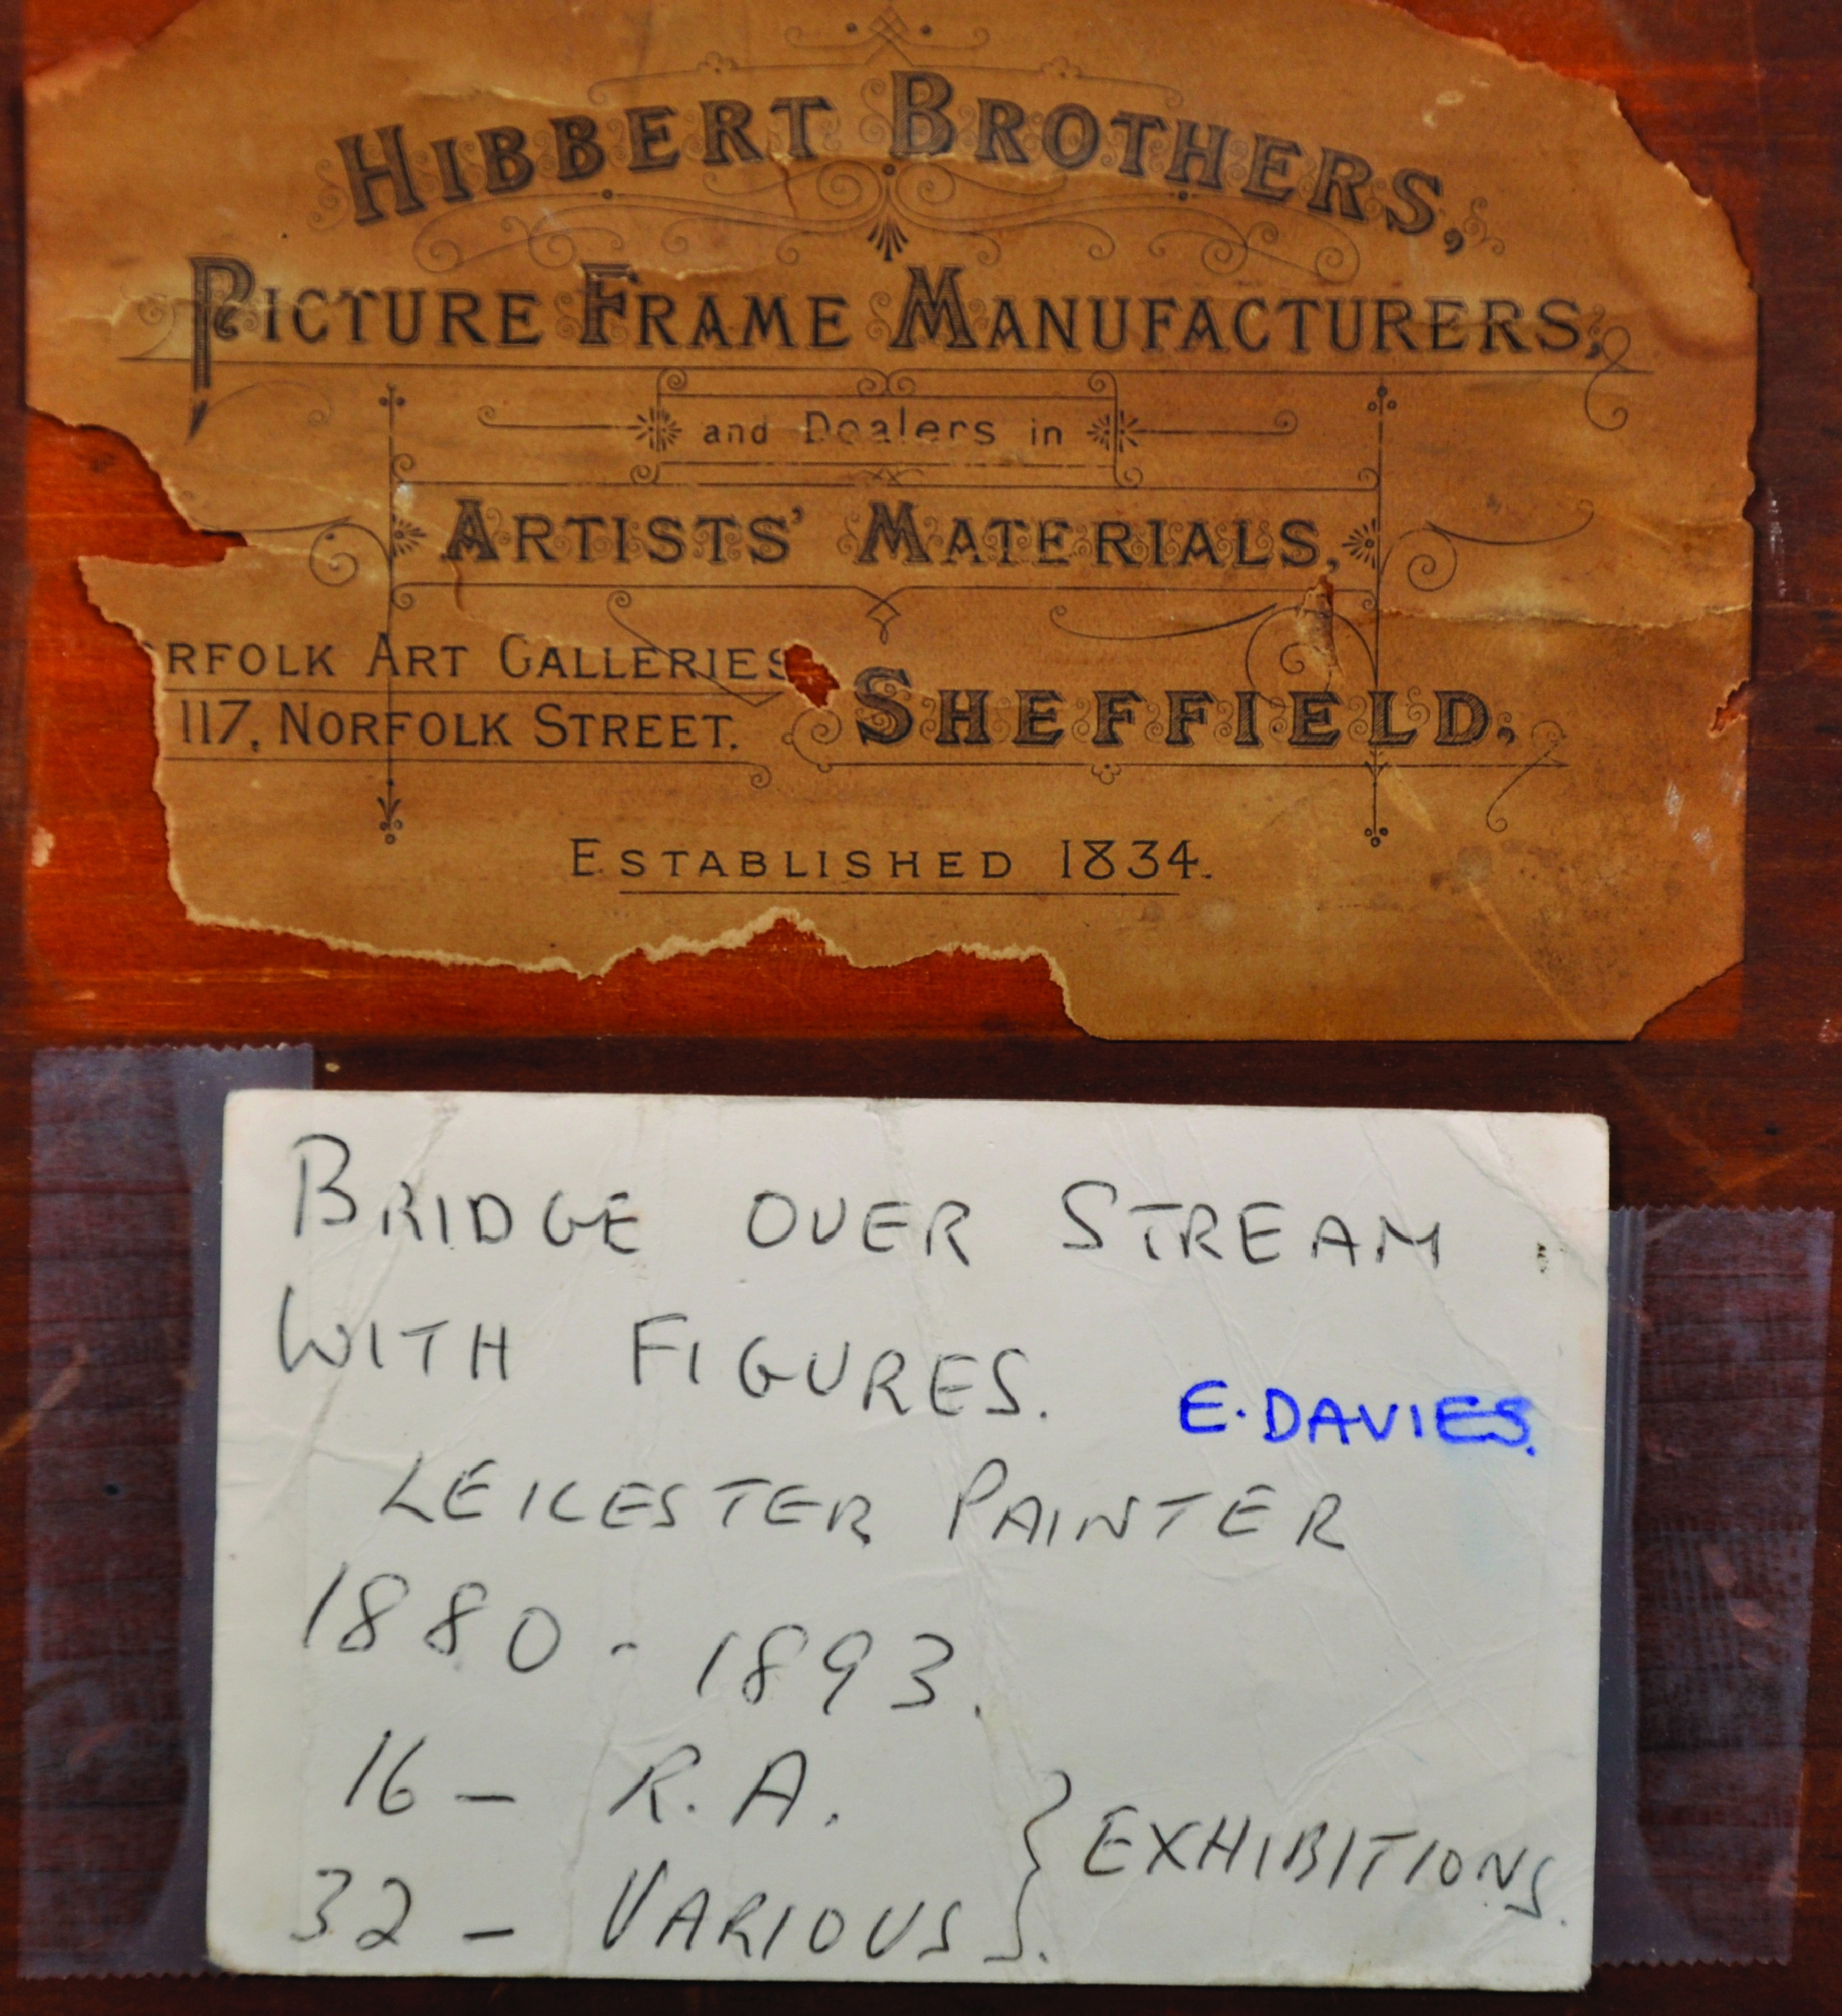 HIBBERT BROTHERS,
PICTURE FRAME MANUFACTURERS,
and Dealers in
ARTISTS' MATERIALS,
RFOLK ART GALLERIES
117, NORFOLK STREET.
SHEFFIELD,
ESTABLISHED 1834.
BRIDGE OVER STREAM
WITH FIGURES. E. DAVIES.
LEICESTER PAINTER
1880 - 1893.
16 - R.A.
32 - VARIOUS. } EXHIBITIONS.